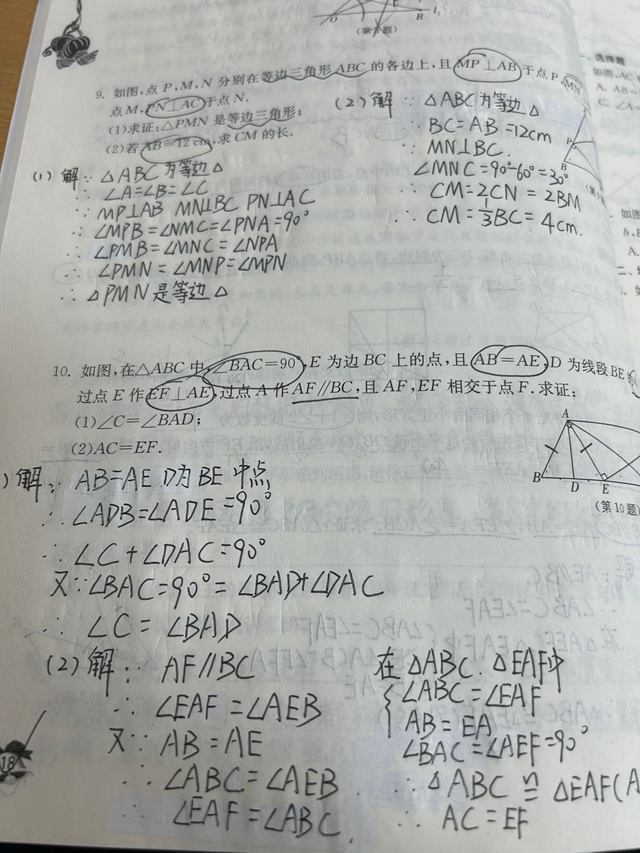 B
(第8题)
9. 如图,点 P,M,N 分别在等边三角形 ABC 的各边上,且 MP⊥AB 于点 P, MN
点 M, PN⊥AC 于点 N.
(1)求证:△PMN 是等边三角形;
(2)若 AB=12 cm,求 CM 的长.
(1) 解: ∵ △ABC 为等边△
∴ ∠A=∠B=∠C
∵ MP⊥AB MN⊥BC PN⊥AC
∴ ∠MPB=∠NMC=∠PNA=90°
∴ ∠PMB=∠MNC=∠NPA
∴ ∠PMN=∠MNP=∠MPN
∴ △PMN 是等边△
(2) 解 ∵ △ABC 为等边△
∴ BC=AB=12cm
∵ MN⊥BC.
∠MNC=90°-60°=30°
∴ CM=2CN=2BM
∴ CM=1/3BC=4cm.
10. 如图,在△ABC 中,∠BAC=90°,E 为边 BC 上的点,且 AB=AE,D 为线段 BE
过点 E 作 EF⊥AE,过点 A 作 AF∥BC,且 AF,EF 相交于点 F. 求证:
(1)∠C=∠BAD;
(2)AC=EF.
A
B D E
(第10题)
) 解: ∵ AB=AE D为BE中点
∴ ∠ADB=∠ADE=90°
∴ ∠C+∠DAC=90°
又∵ ∠BAC=90°=∠BAD+∠DAC
∴ ∠C=∠BAD
(2) 解: ∵ AF∥BC
∴ ∠EAF=∠AEB
又∵ AB=AE
∴ ∠ABC=∠AEB
∴ ∠EAF=∠ABC
在△ABC、△EAF中
∠ABC=∠EAF
AB=EA
∠BAC=∠AEF=90°
∴ △ABC≌△EAF(A
∴ AC=EF
18